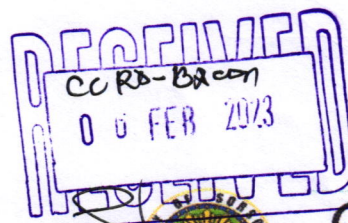 RECEIVED
CCRD-Bacon
0 6 FEB 2023